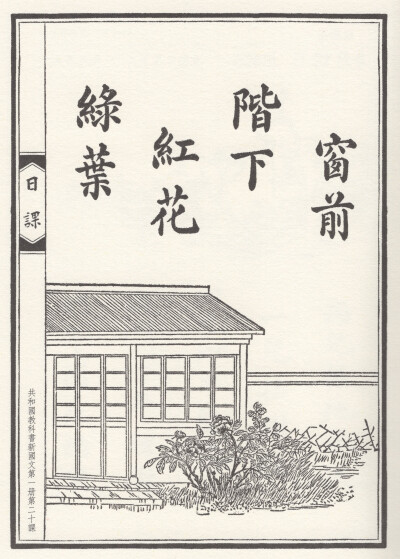 窗前
階下
紅花
綠葉
日課
共和國教科書新國文第一册第二十課